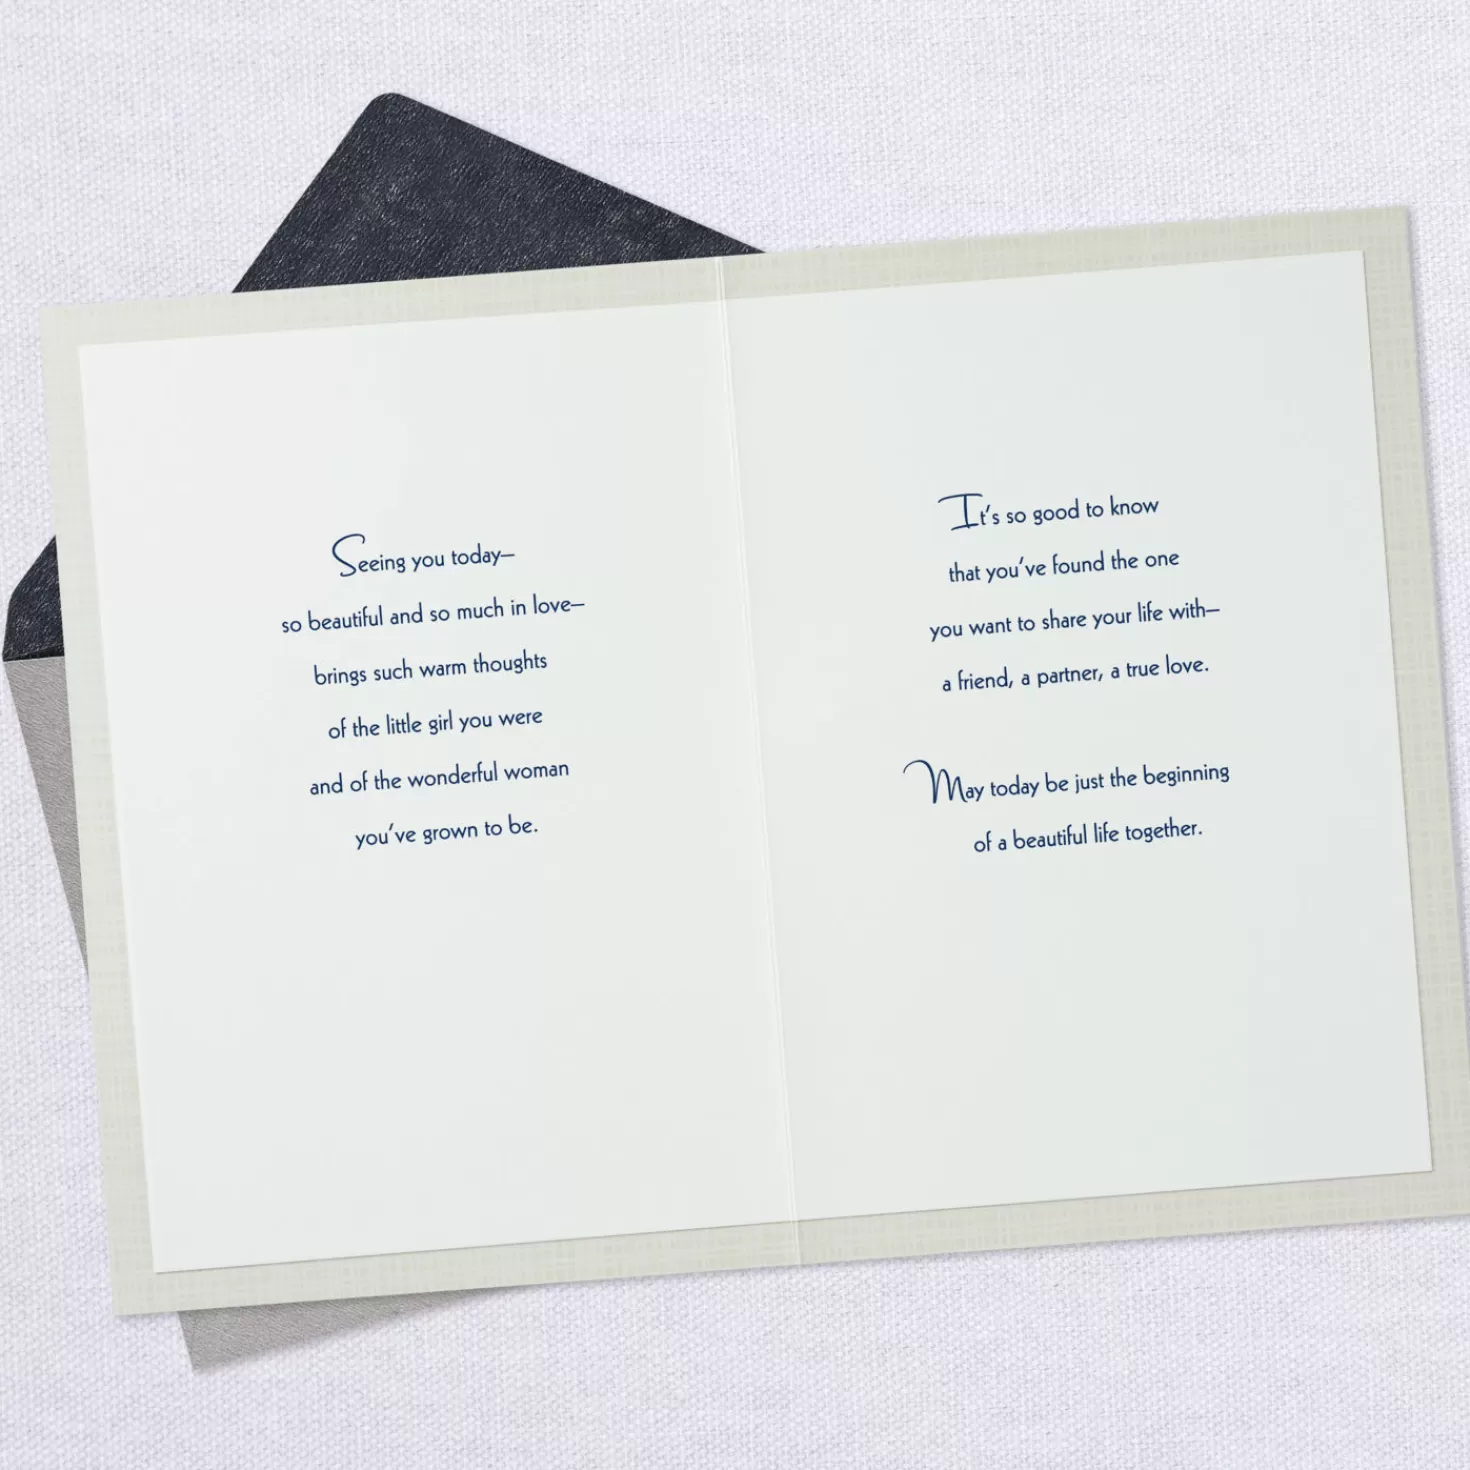 Seeing you today—
so beautiful and so much in love—
brings such warm thoughts
of the little girl you were
and of the wonderful woman
you've grown to be.
It's so good to know
that you've found the one
you want to share your life with—
a friend, a partner, a true love.
May today be just the beginning
of a beautiful life together.